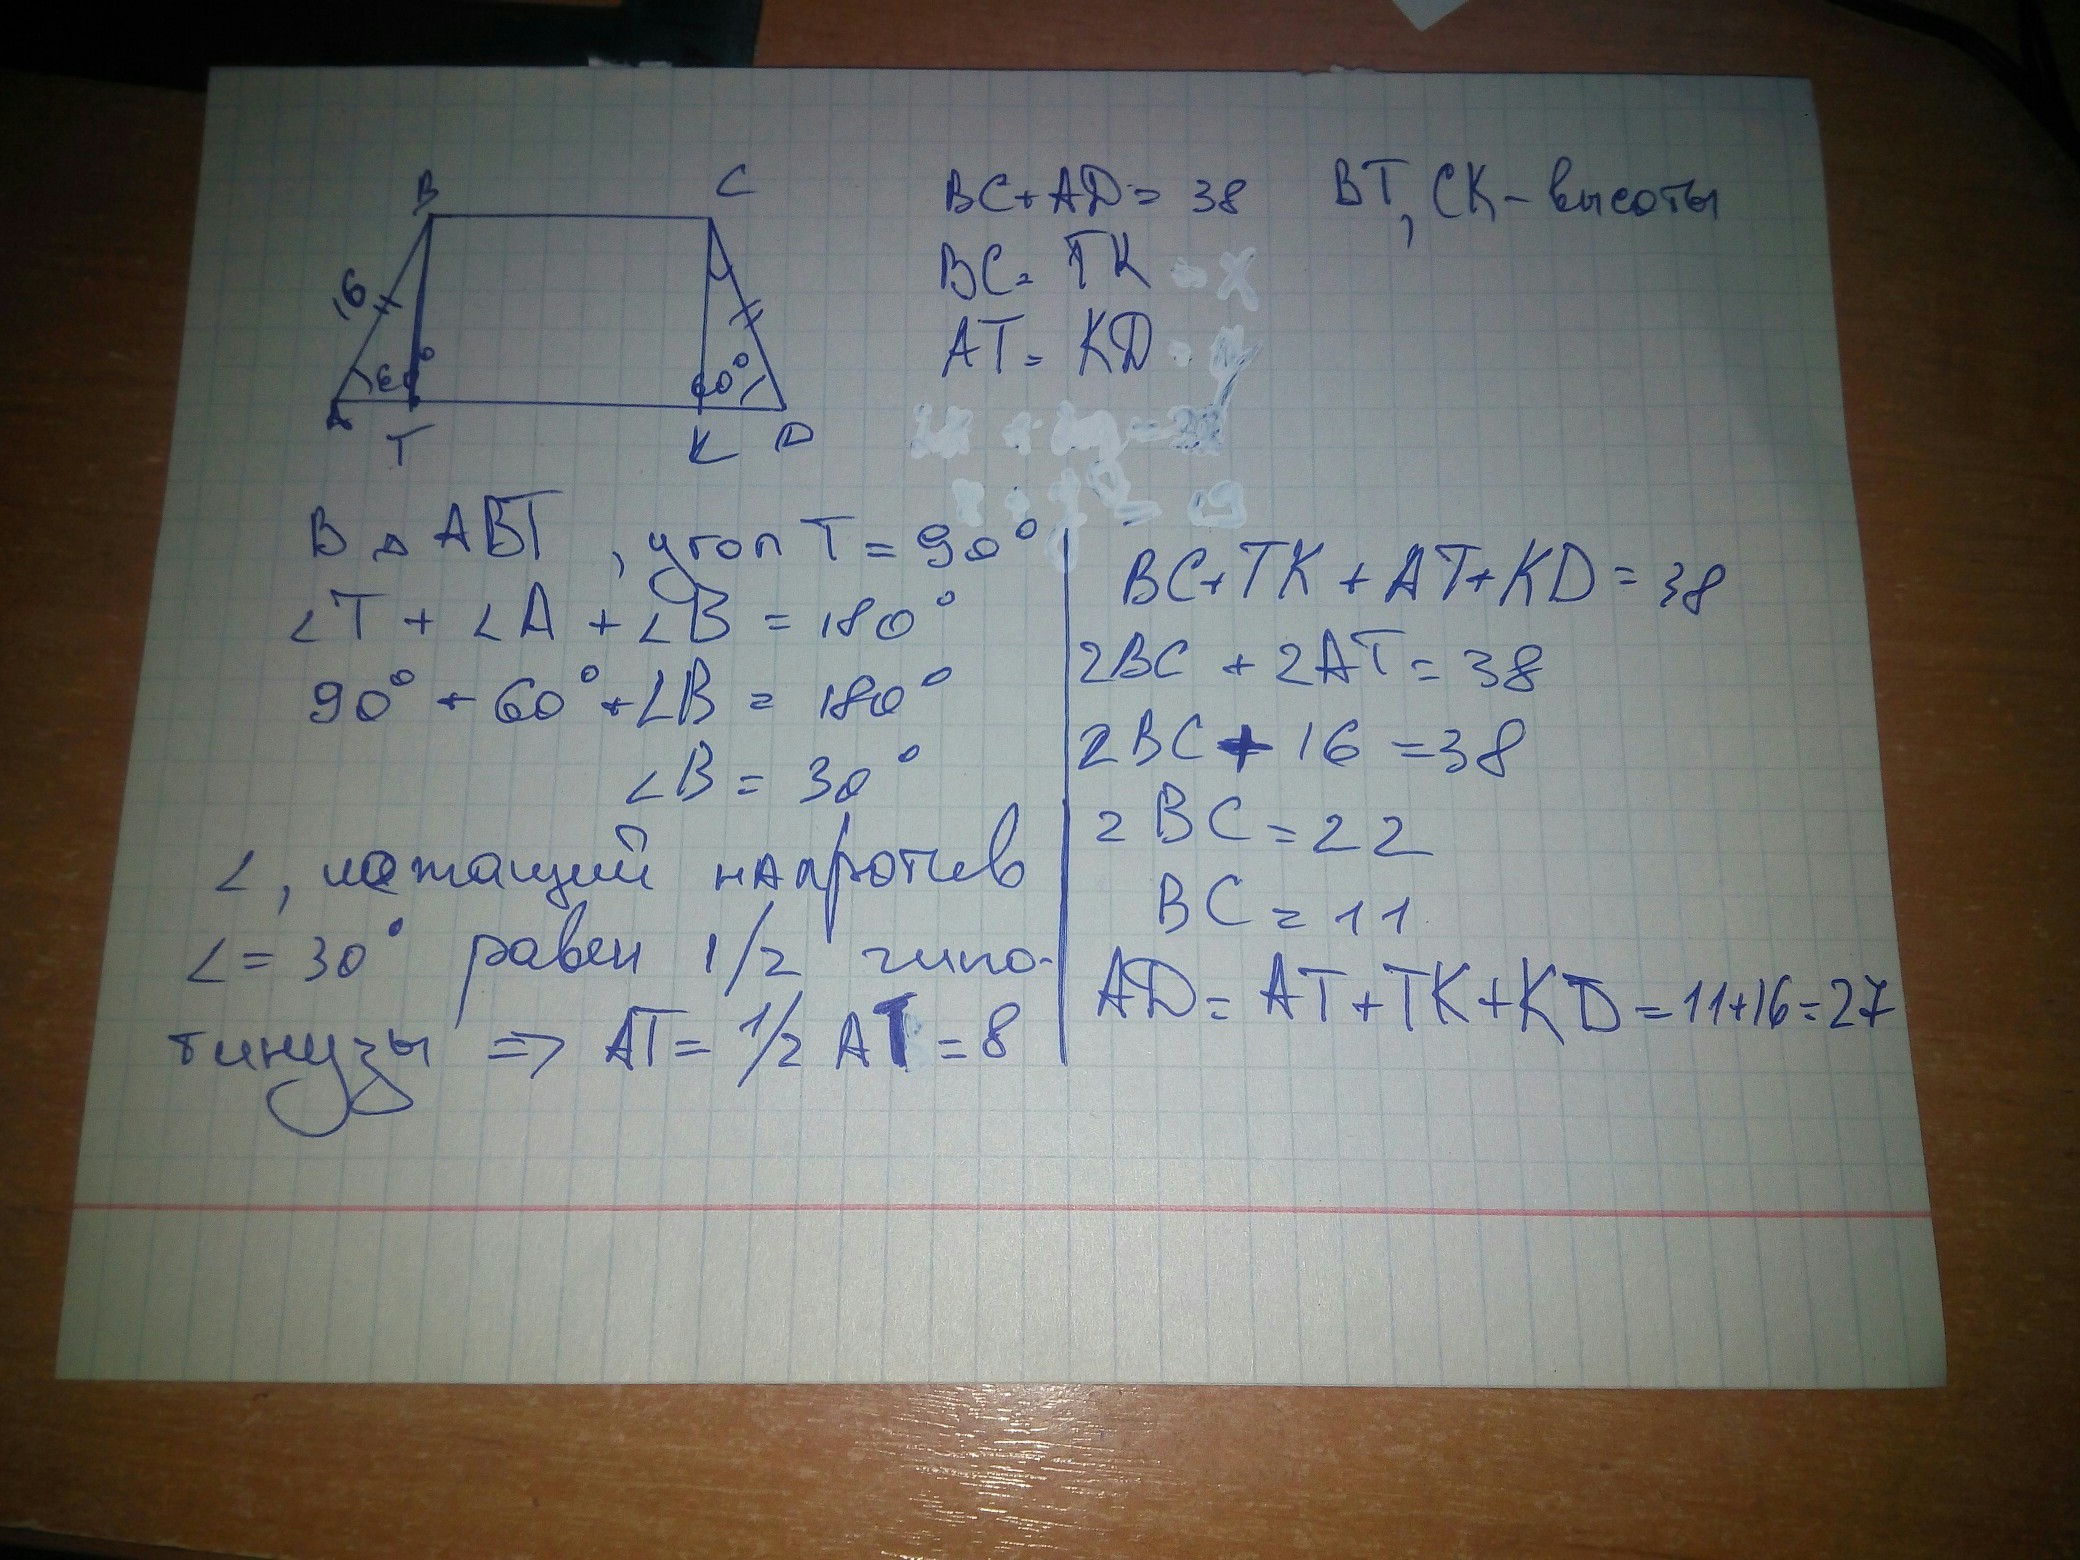 B
C
16
60°
60°
A
T
K
D
BC+AD= 38
BT, CK - высоты
BC= TK
AT= KD
В △ ABT, угол T = 90°
∠T + ∠A + ∠B = 180°
90° + 60° + ∠B = 180°
∠B = 30°
∠, лежащий напротив
∠= 30° равен 1/2 гипо-
тинузы => AT= 1/2 AT = 8
BC+TK+AT+KD= 38
2BC + 2AT= 38
2BC + 16 =38
2BC=22
BC=11
AD= AT+TK+KD=11+16=27